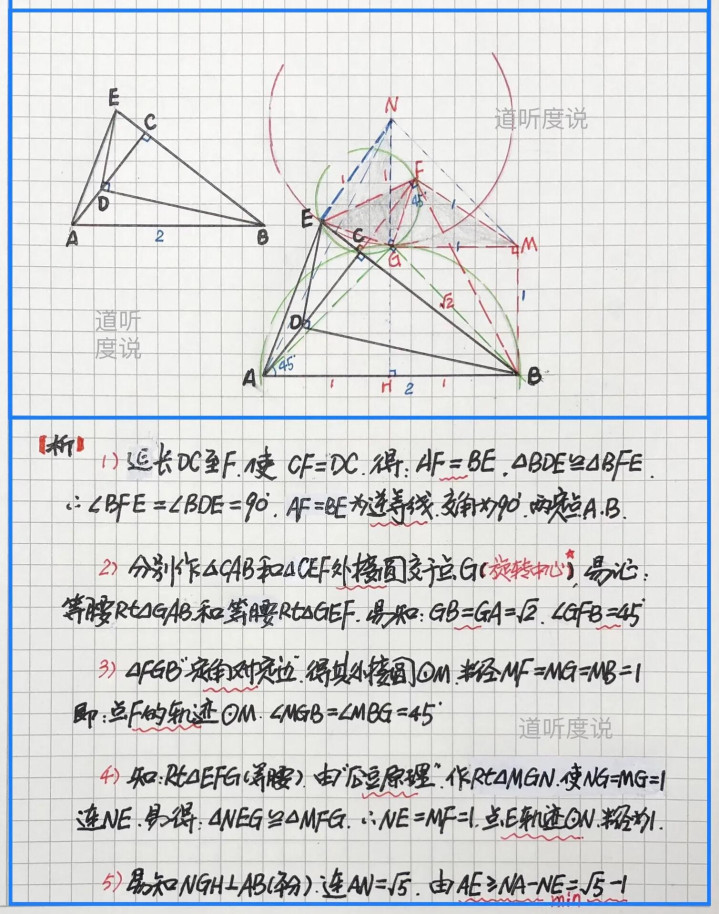 E
C
D
A
2
B
道听
度说
道听度说
N
1
1
F
45°
1
E
C
G
1
M
√2
1
D
A
45°
1
H
2
1
B
【析】 1) 延长DC至F.使 CF=DC.得:AF=BE.△BDE≌△BFE.
∴∠BFE=∠BDE=90°.AF=BE为逆等线.交角为90°.两定点A.B.
2) 分别作△CAB和△CEF外接圆交于点G(旋转中心★).易证:
等腰Rt△GAB.和等腰Rt△GEF.易知:GB=GA=√2.∠GFB=45°
3) △FGB"定角对定边".得其外接圆⊙M.半径MF=MG=MB=1
即:点F的轨迹⊙M.∠MGB=∠MBG=45°
道听度说
4) 知:Rt△EFG(等腰).由"瓜豆原理".作Rt△MGN.使NG=MG=1
连NE.易得:△NEG≌△MFG.∴NE=MF=1.点E轨迹⊙N.半径为1.
5) 易知NGH⊥AB(平分).连AN=√5.由AE≥NA-NE=√5-1
min